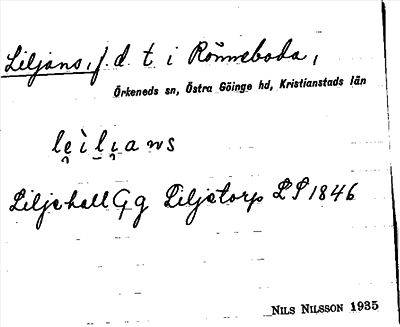 Liljans, f. d. t. i Rönneboda,
Örkeneds sn, Östra Göinge hd, Kristianstads län
Liljehall Gg Liljetorp LS 1846
NILS NILSSON 1935